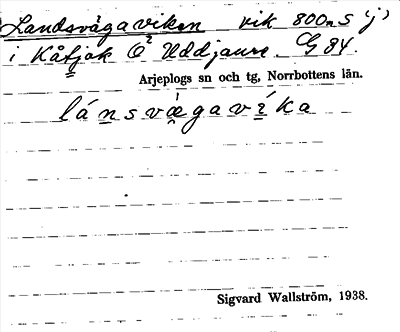 Landsvågaviken vik 800m S 'j'
i Kåtjok Ö² Uddjaure. G 84.
Arjeplogs sn och tg, Norrbottens län.
lánsvägavíka
Sigvard Wallström, 1938.